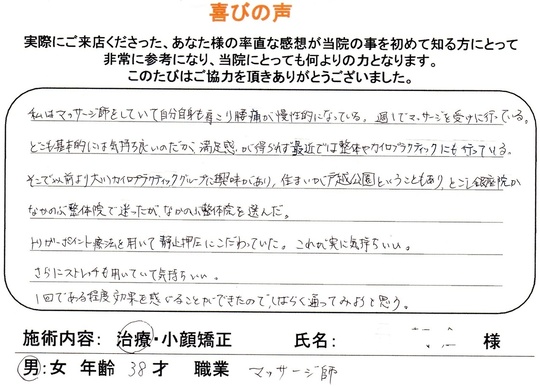 喜びの声
実際にご来店くださった、あなた様の率直な感想が当院の事を初めて知る方にとって
非常に参考になり、当院にとっても何よりの力となります。
このたびはご協力を頂きありがとうございました。
私はマッサージ師をしていて自分自身も肩こり腰痛が慢性的になっている。週1でマッサージを受けに行っている。
どこも基本的には気持ち良いのだが、満足感が得られず最近では整体やカイロプラクティックにも行っている。
そこで以前より大川カイロプラクティックグループに興味があり、住まいが戸越公園ということもあり、とごし銀座院か
なかのぶ整体院で迷ったが、なかのぶ整体院を選んだ。
トリガーポイント療法を用いて静止押圧にこだわっていた。これが実に気持ちいい。
さらにストレッチも用いていて気持ちいい。
1回である程度効果を感じることができたので、しばらく通ってみようと思う。
施術内容: 治療・小顔矯正 氏名: 様
男:女 年齢 38才 職業 マッサージ師